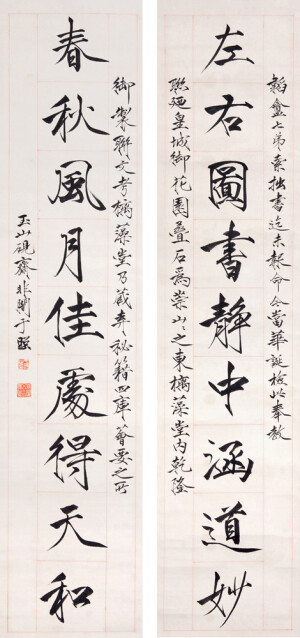 左右圖書靜中涵道妙
韜盦七弟索拙書迄未報命今當華誕檢此奉教
聯廼皇城御花園疊石爲崇山山之東摛藻堂內乾隆
春秋風月佳處得天和
御製聯文考摛藻堂乃藏弆秘籍四庫薈要之所
玉山硯齋非闇于照